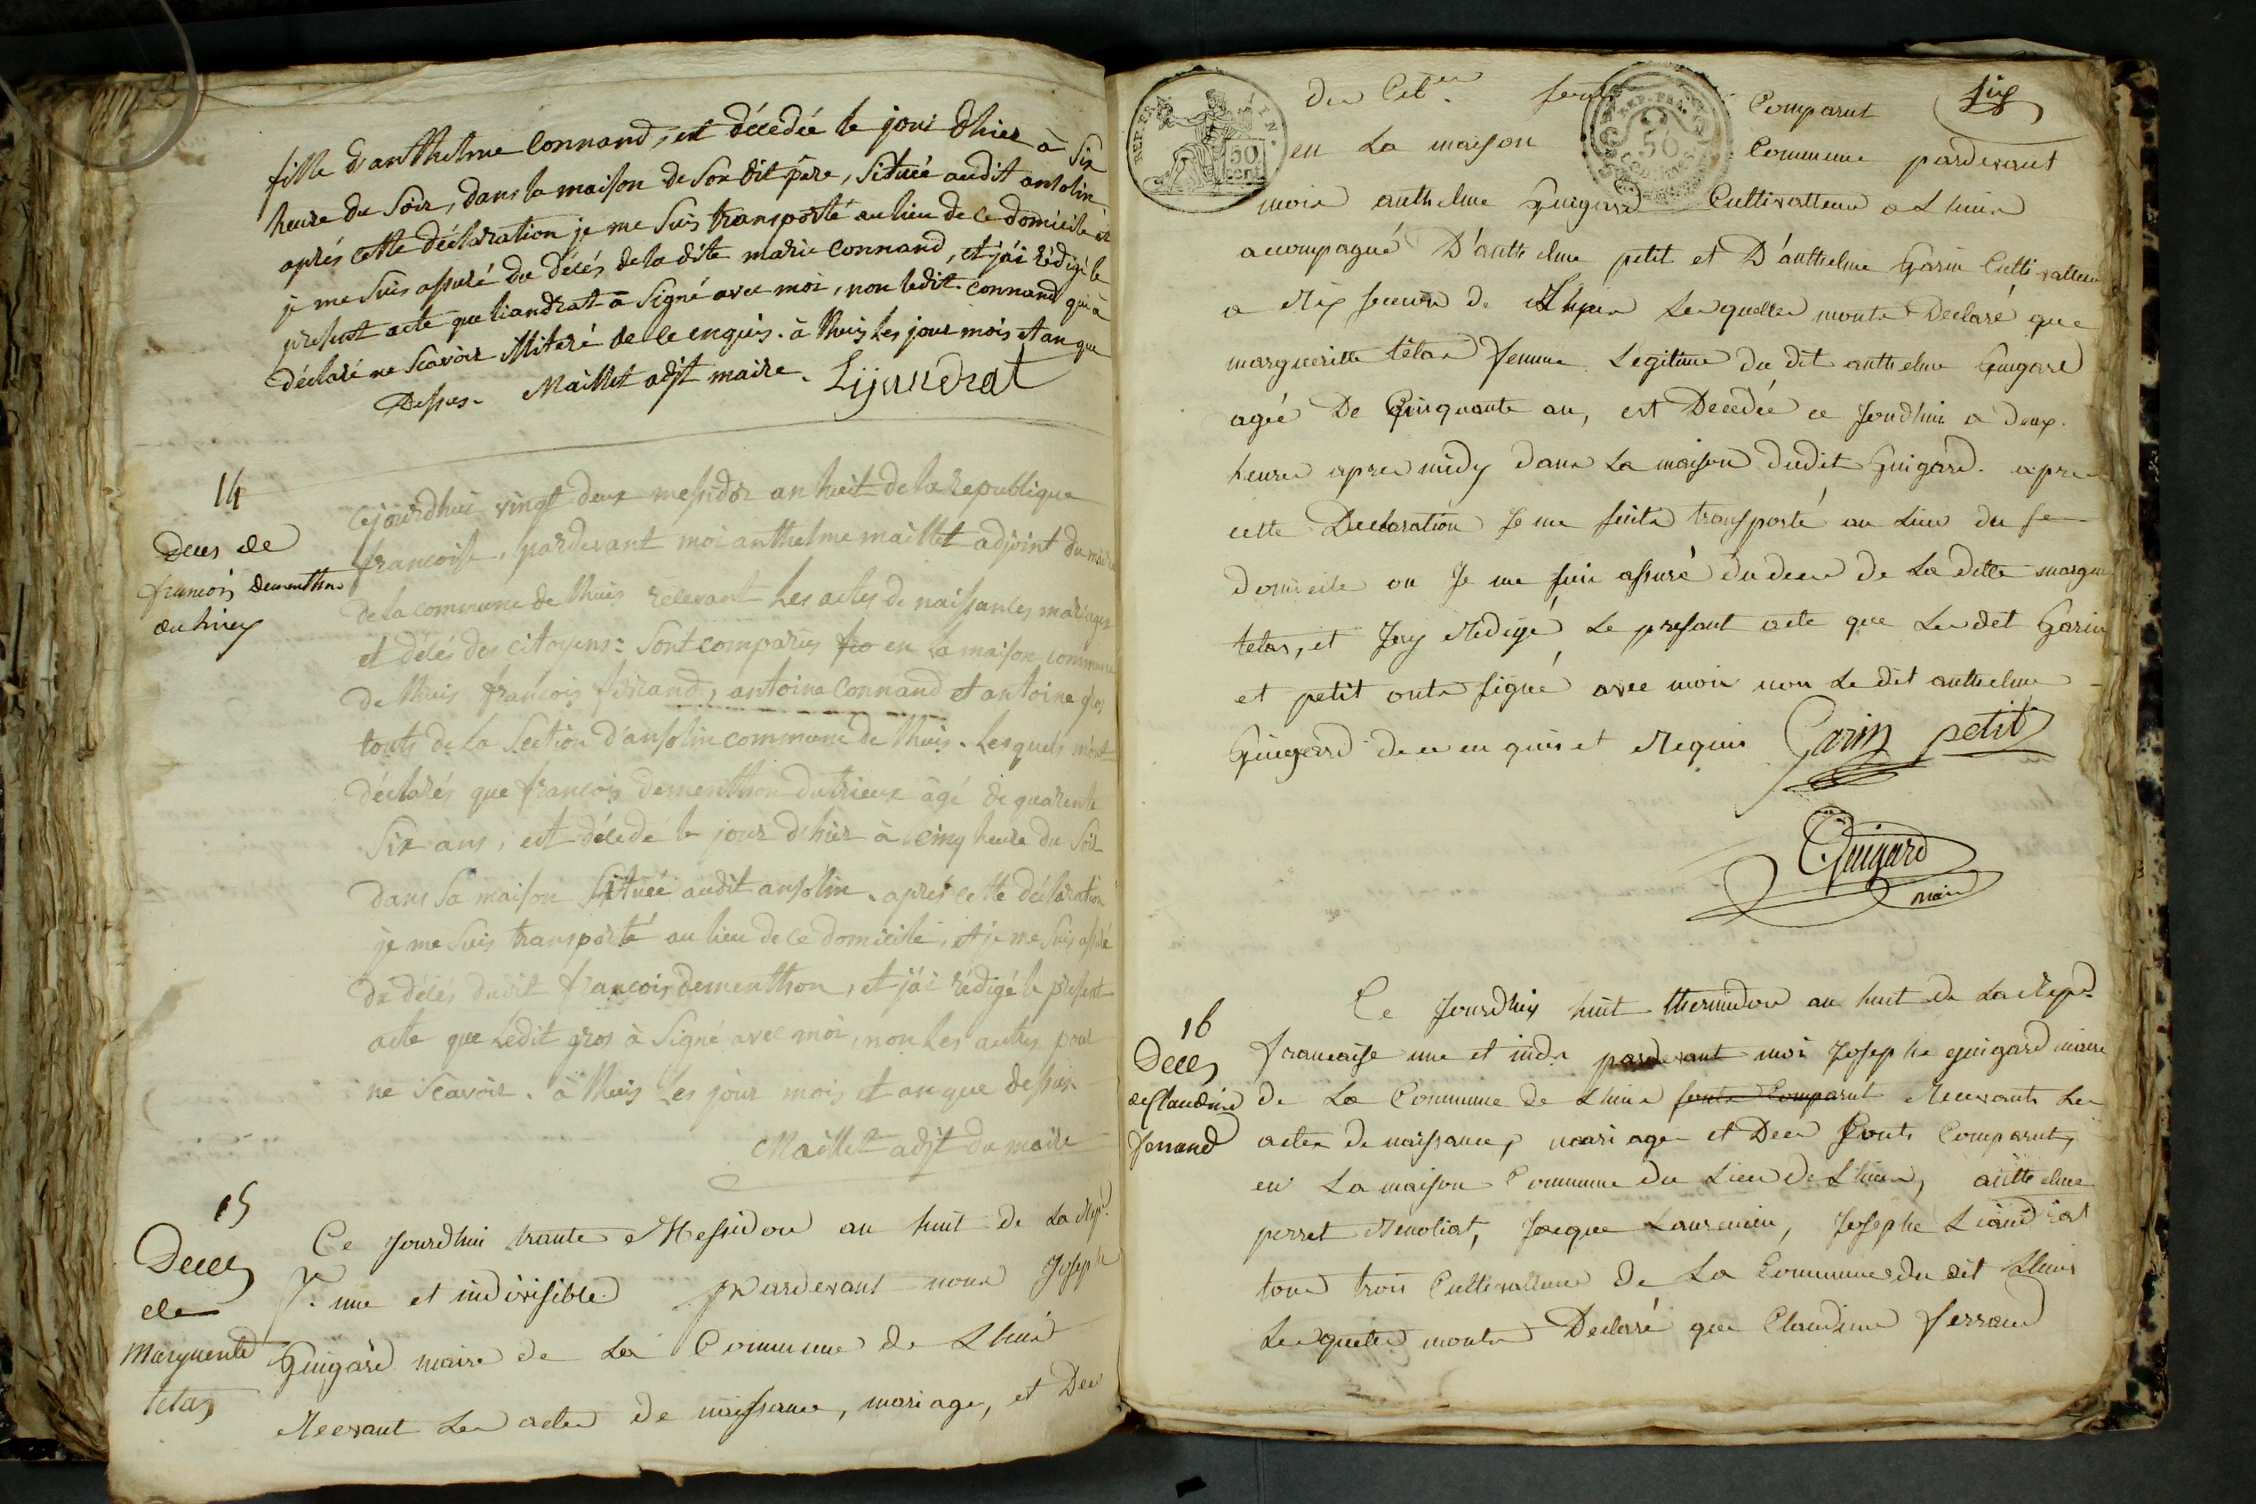 fille d'anthelme Connand, est décédée le jour d'hier à six
heure du soir, dans la maison de son dit père, située audit ansolin
après cette déclaration je me suis transporté au lieu de ce domicile et
je me suis assuré du décès de la dite marie connand, et j'ai rédigé le
présent acte que liandrat à signé avec moi, non ledit connand qui à
déclaré ne scavoir de ce enquis. à lhuis les jour mois et an que
Dessus. Maillet adjt maire. Lijandrat
14
Deces de
francois dementhon
du trieux
Cejourdhui vingt deux messidor an huit de la republique
francoise, pardevant moi anthelme maillet adjoint du maire
de la commune de lhuis recevant les actes de naissances mariages
et décès des citoyens: sont comparus en la maison commune
de lhuis francois ferrand, antoine Connand et antoine gros
touts de la section d'ansolin commune de lhuis. Lesquels m'ont
déclarés que francois dementhon dutrieux àgé de quarente
six ans, est décedé le jour d'hier à cinq heure du soir
dans sa maison située audit ansolin. après cette déclaration
je me suis transporté au lieu de ce domicile, et je me suis assuré
du décès dudit francois dementhon, et j'ai rédigé le présent
acte que Ledit gros à signé avec moi, non les autres pour
ne scavoir. à lhuis Les jour mois et an que dessus.
Maillet adjt du maire
15
Deces
de
Marguerite
tetas
Ce Jourdhui trante Messidor an huit de La Rép.
f. une et indivisible pardevant nous Joseph
Guigard maire de La Commune de Lhuis
Recevant Les actes de naissance, mariage, et Deces
Six
REP. FRA.
50
cent
REP. FRA.
50
des Cit. sont Comparut
en La maison Commune pardevant
mois anthelme Guigard Cultivatteur a Lhuis
acompagné D'anthelme petit et D'anthelme Garin Cultivatteur
a Rix section de Lhuis Lesquelles monts Declaré que
margueritte têtas femme Legitime du dit anthelme Guigard
agée De Cinquante an, est Decedée ce Jourdhui a Deux
heures apres midy dans La maison dudit Guigard. apres
cette Declaration Je me suits transporté au Lieu du se
domicile ou Je me suis assuré du deces de La ditte margue
tetas, et Jay Redigé Le presant acte que Les dit Garin
et petit onts signé avec mois non Le dit anthelme
Guigard de ce en quis et Requis Garin petit
Guigard
maire
16
Deces
de Claudine
ferrand
Ce Jourdhuy huit thermidor an huit de La Rep.
francaise une et indi pardevant moi Josephe guigard maire
de La Commune de Lhuis sonts Comparut Recevants Les
actes de naissances, mariages et Deces sonts Comparut,
en La maison Commune du Lieu de Lhuis, anthelme
perret Jacque Laurencin, Josephe Liandrat
tous trois Cultivatteur de La Commune du dit Lhuis
Lesquels monts Declaré que Claudine ferrand